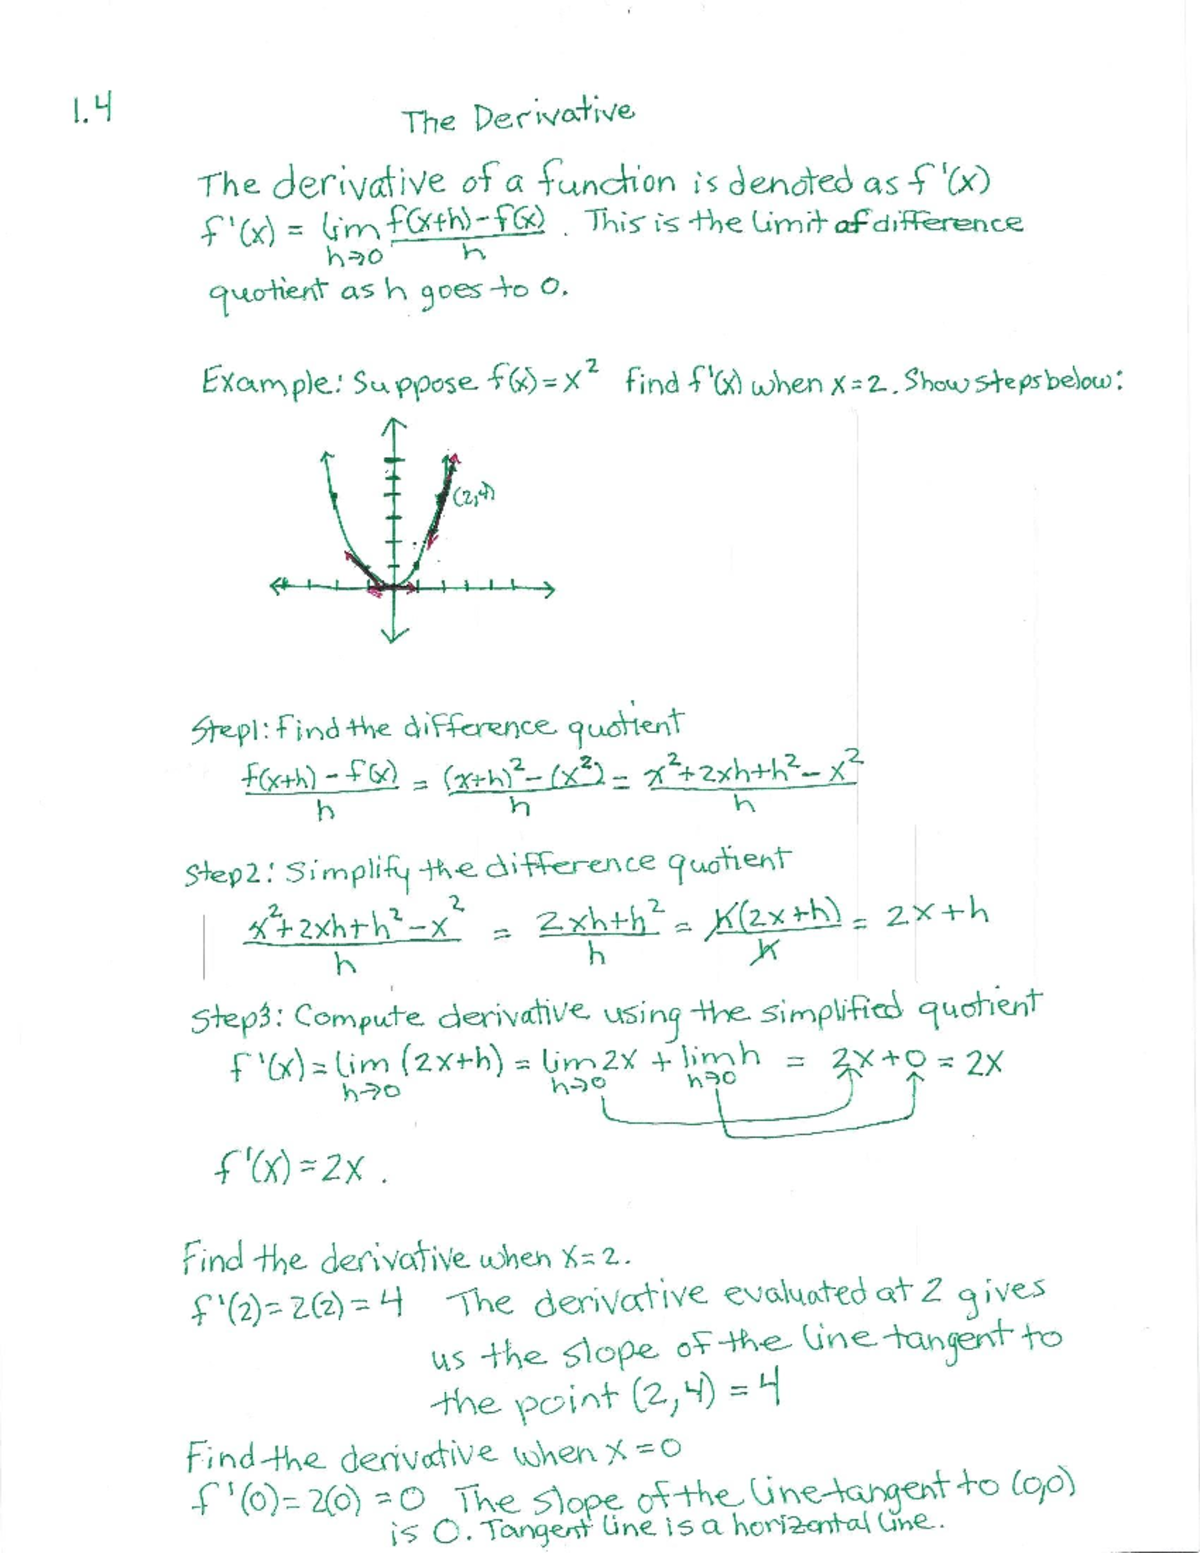 1.4
The Derivative
The derivative of a function is denoted as f'(x)
f'(x) = lim h→0 (f(x+h)-f(x))/h . This is the limit of difference
quotient as h goes to 0.
Example: Suppose f(x)=x² find f'(x) when x=2. Show steps below:
(2,4)
Step1: Find the difference quotient
(f(x+h) - f(x))/h = ((x+h)²-(x²))/h = (x²+2xh+h²-x²)/h
Step2: Simplify the difference quotient
(x²+2xh+h²-x²)/h = (2xh+h²)/h = h(2x+h)/h = 2x+h
Step3: Compute derivative using the simplified quotient
f'(x) = lim h→0 (2x+h) = lim h→0 2x + lim h→0 h = 2x+0 = 2x
f'(x) = 2x .
Find the derivative when x=2.
f'(2)= 2(2) = 4 The derivative evaluated at 2 gives
us the slope of the line tangent to
the point (2,4) = 4
Find the derivative when x=0
f'(0)= 2(0) = 0 The slope of the line tangent to (0,0)
is 0. Tangent line is a horizontal line.